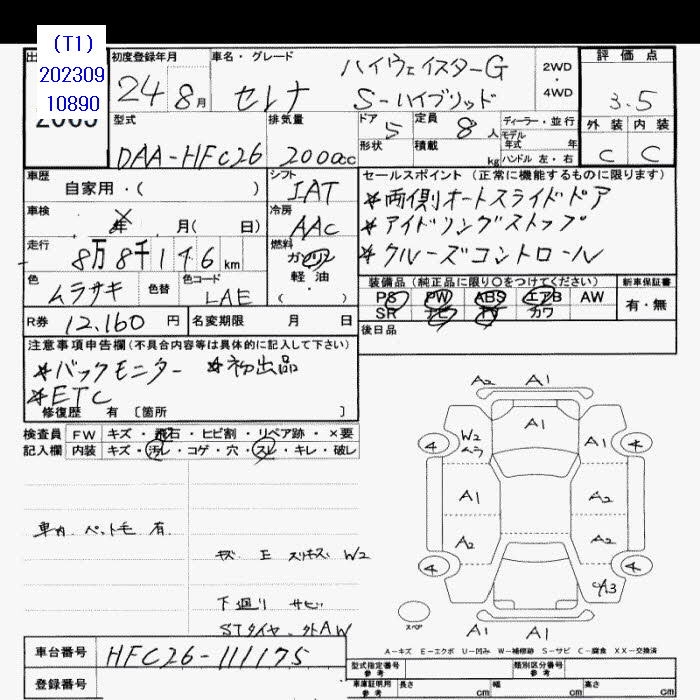 (T1)
202309
10890
初度登録年月
24 8月
車名・グレード
ハイウェイスターG
セレナ S-ハイブリッド
2WD
・
4WD
評価点
3.5
外装 内装
C C
型式
DAA-HFC26
排気量
2000cc
ドア
5
定員
8人
形状
積載
kg
ディーラー・並行
モデル
年式 年
ハンドル 左・右
車歴
自家用・( )
シフト
IAT
セールスポイント(正常に機能するものに限ります)
*両側オートスライドドア
*アイドリングストップ
*クルーズコントロール
車検
年 月( 日)
冷房
AAC
走行
8万8千146km
燃料
ガソリン
軽油
( ・ )
色
ムラサキ
色替
色コード
LAE
装備品(純正品に限り○をつけてください)
新車保証書
PS PW ABS エアB AW
SR ナビ TV カワ
有・無
R券 12,160円
名変期限 月 日
後日品
注意事項申告欄(不具合内容等は具体的に記入して下さい)
*バックモニター *初出品
*ETC
修復歴 有 〔箇所 〕
検査員 FW キズ・飛石・ヒビ割・リペア跡・×要
記入欄 内装 キズ・汚レ・コゲ・穴・スレ・キレ・破レ
車内 ペット毛 有
キズ E スリキズ W2
下廻り サビ
STタイヤ・外AW
A2 A1
A1
4 W2 ムラ A1 4
A1 A2
A2 A2
4 4
A1 A1
スペア
A-キズ E-エクボ U-凹み W-補修跡 S-サビ C-腐食 XX-交換済
車台番号 HFC26-111175
登録番号
型式指定番号
参考
類別区分番号
参考
車庫証明用
参考
長さ cm 幅 cm 高さ cm